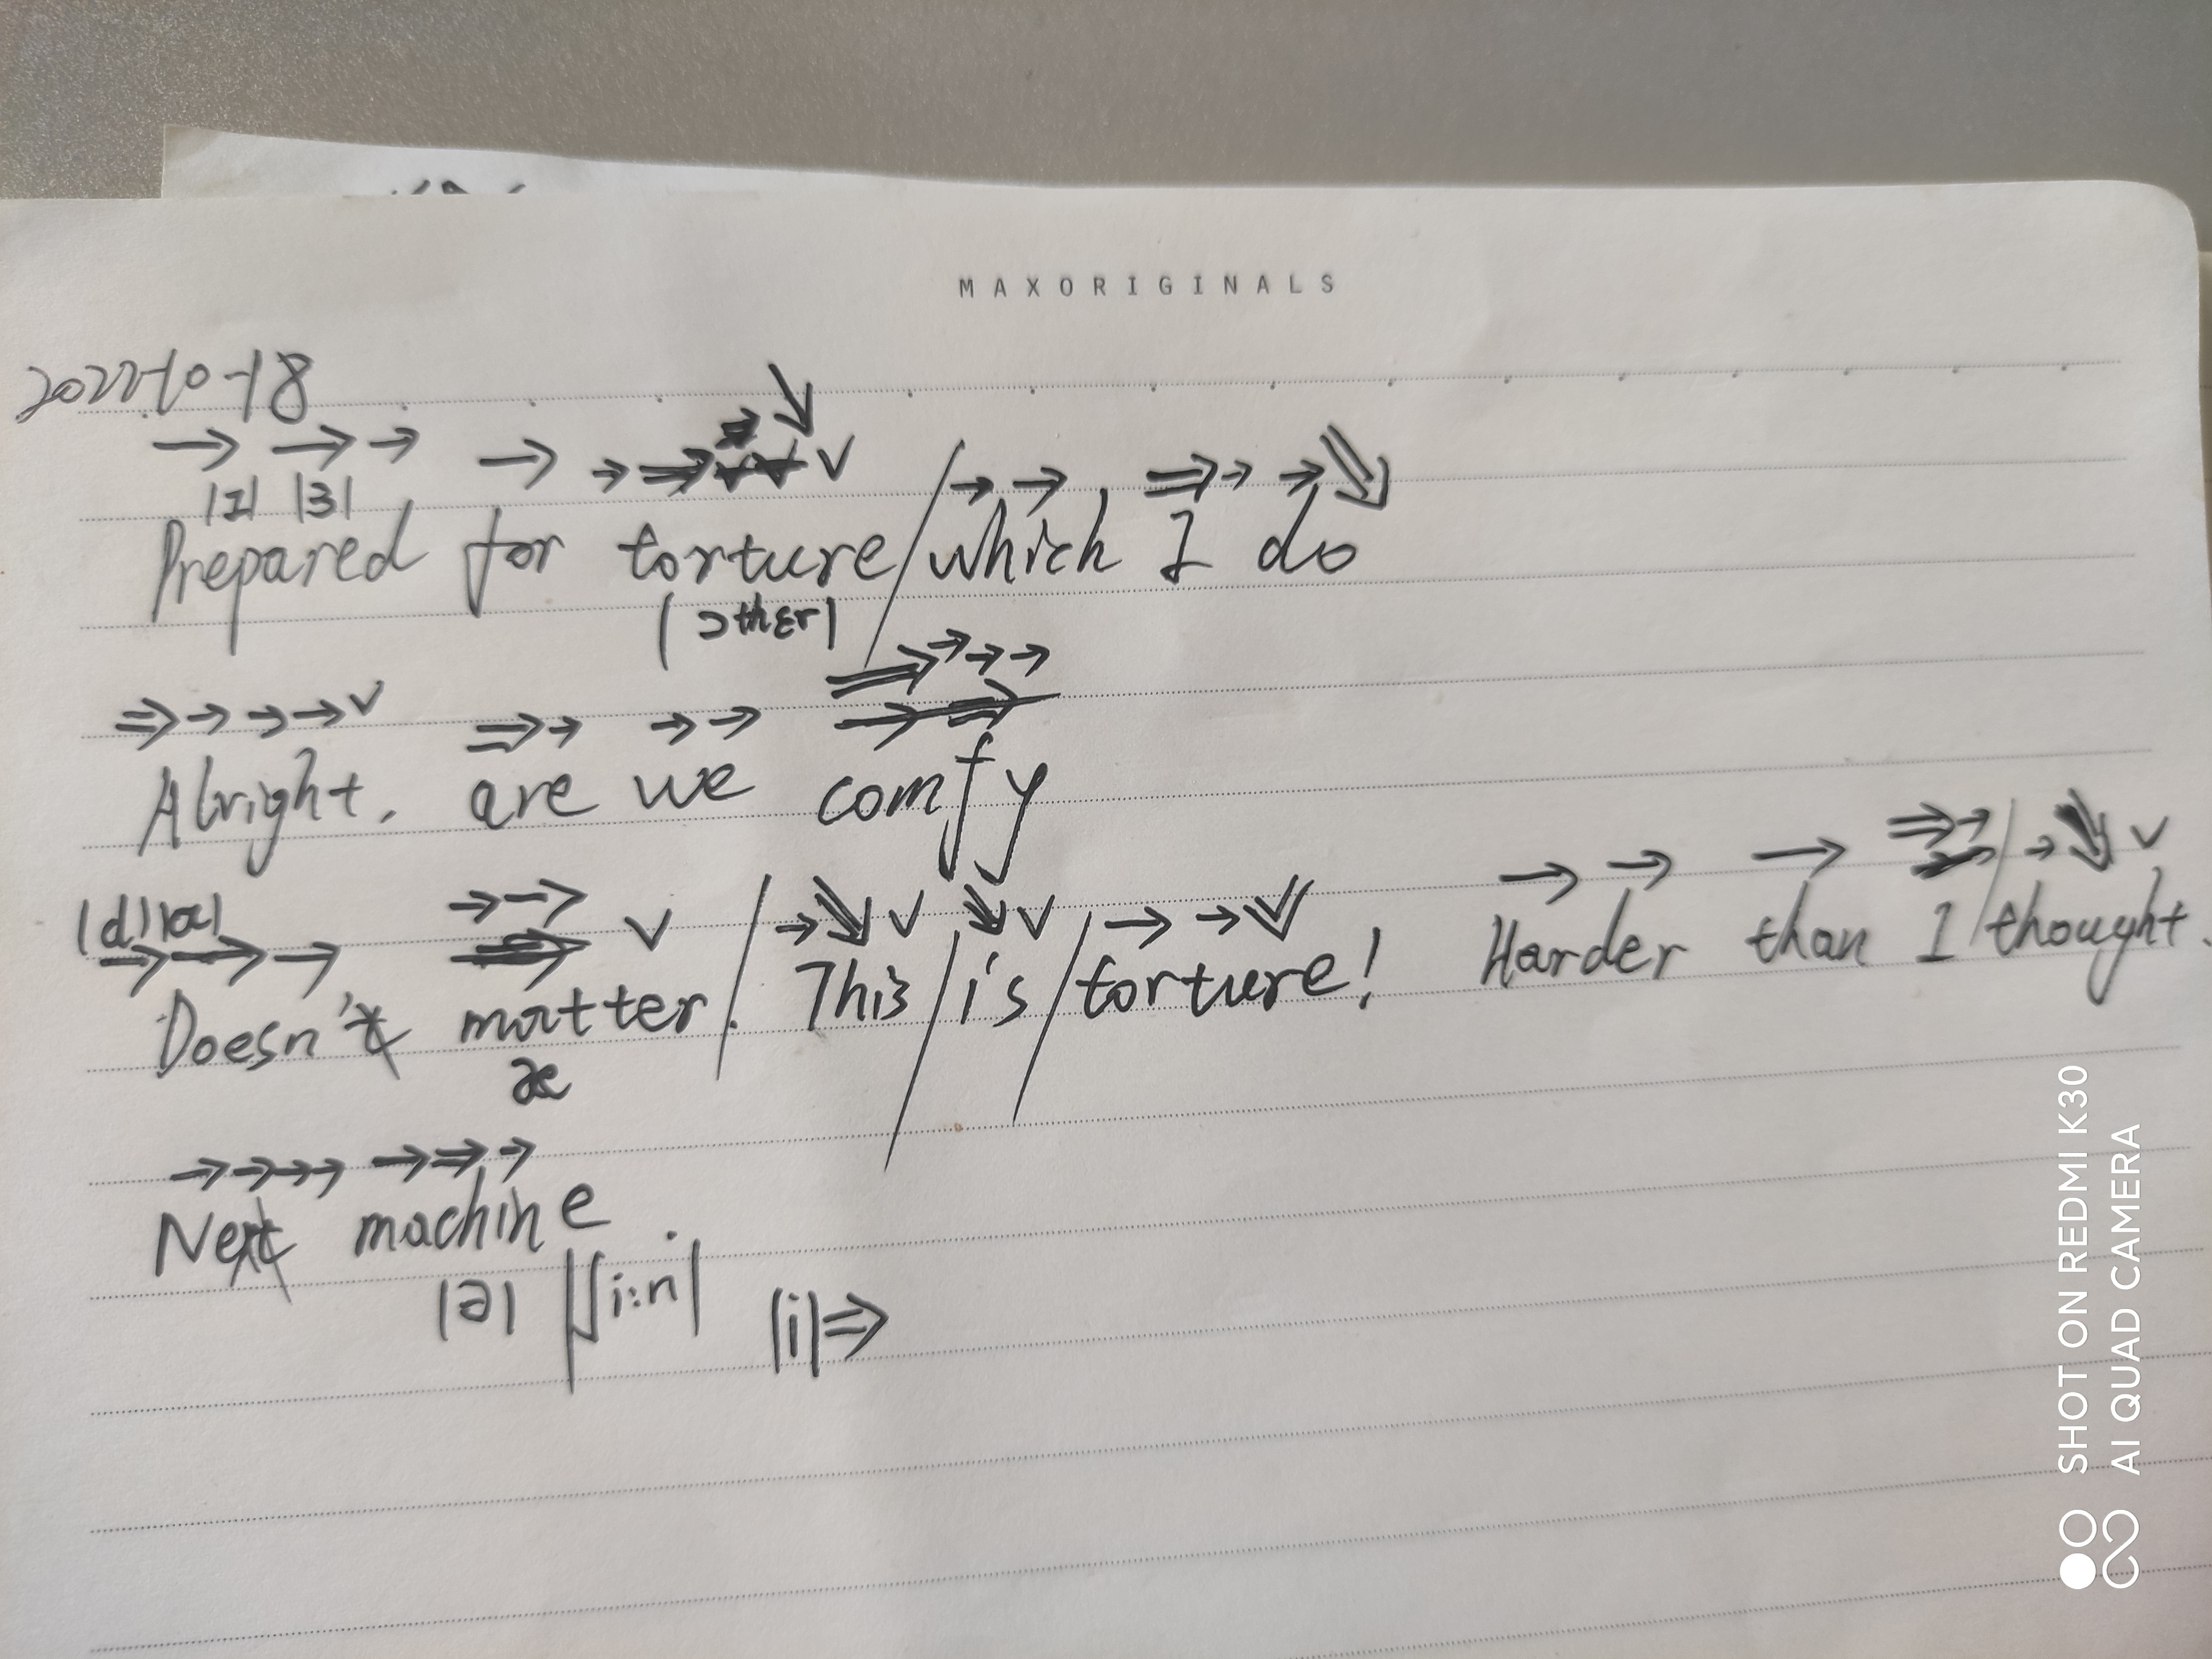 MAXORIGINALS
2022-10-18
|I| |3|
Prepared for torture/which I do
|ɔthɛr|
Alright. are we comfy
|d||a|
Doesn't matter. / This/is/torture! Harder than I/thought.
æ
Next machine.
|ə| |ʃi:n| |i|⇒
SHOT ON REDMI K30
AI QUAD CAMERA